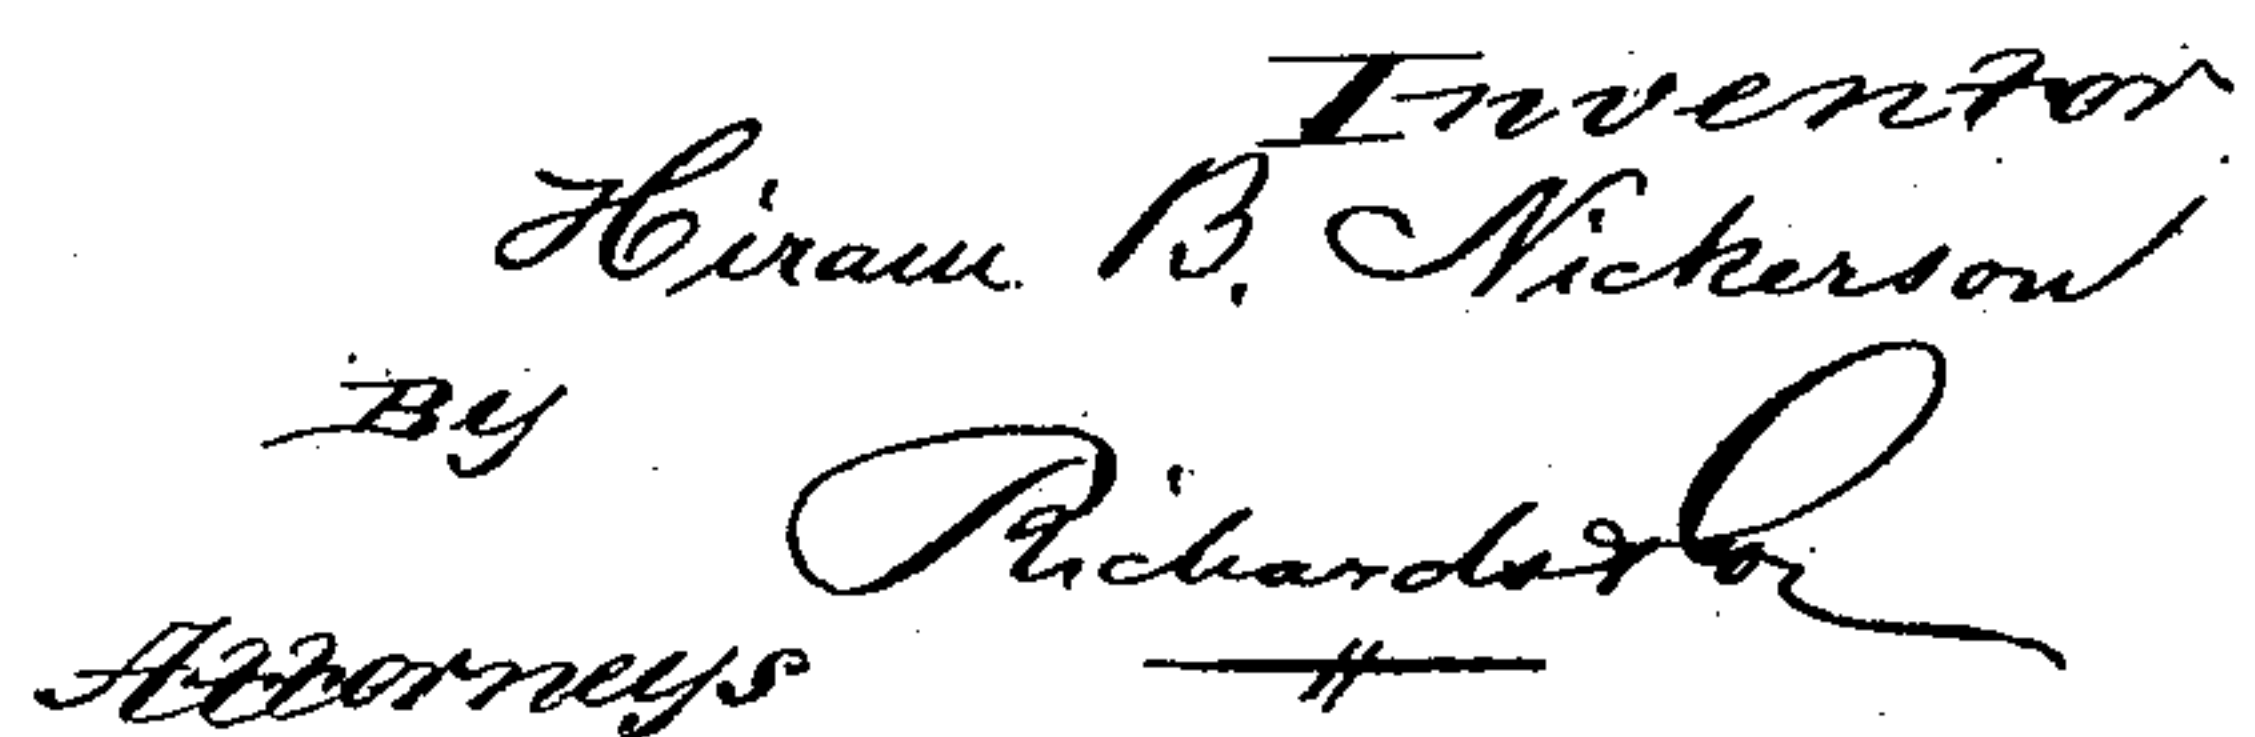 Inventor
Hiram B. Nickerson
By
Richards & Co
Attorneys